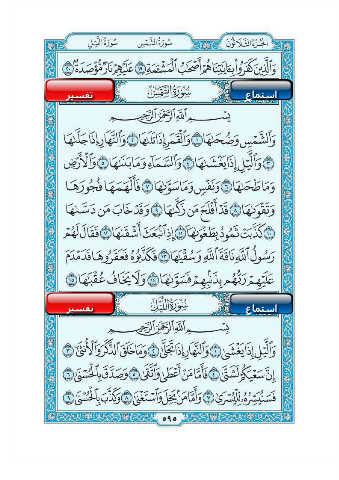 الجزء الثلاثون سورة الشمس سورة الليل
والذين كفروا بآياتنا هم أصحاب المشئمة ١٩ عليهم نار مؤصدة ٢٠
استماع سورة الشمس تفسير
بسم الله الرحمن الرحيم
والشمس وضحاها ١ والقمر إذا تلاها ٢ والنهار إذا جلاها
٣ والليل إذا يغشاها ٤ والسماء وما بناها ٥ والأرض
وما طحاها ٦ ونفس وما سواها ٧ فألهمها فجورها
وتقواها ٨ قد أفلح من زكاها ٩ وقد خاب من دساها
١٠ كذبت ثمود بطغواها ١١ إذ انبعث أشقاها ١٢ فقال لهم
رسول الله ناقة الله وسقياها ١٣ فكذبوه فعقروها فدمدم
عليهم ربهم بذنبهم فسواها ١٤ ولا يخاف عقباها ١٥
استماع سورة الليل تفسير
بسم الله الرحمن الرحيم
والليل إذا يغشى ١ والنهار إذا تجلى ٢ وما خلق الذكر والأنثى ٣
إن سعيكم لشتى ٤ فأما من أعطى واتقى ٥ وصدق بالحسنى ٦
فسنيسره لليسرى ٧ وأما من بخل واستغنى ٨ وكذب بالحسنى ٩
٥٩٥